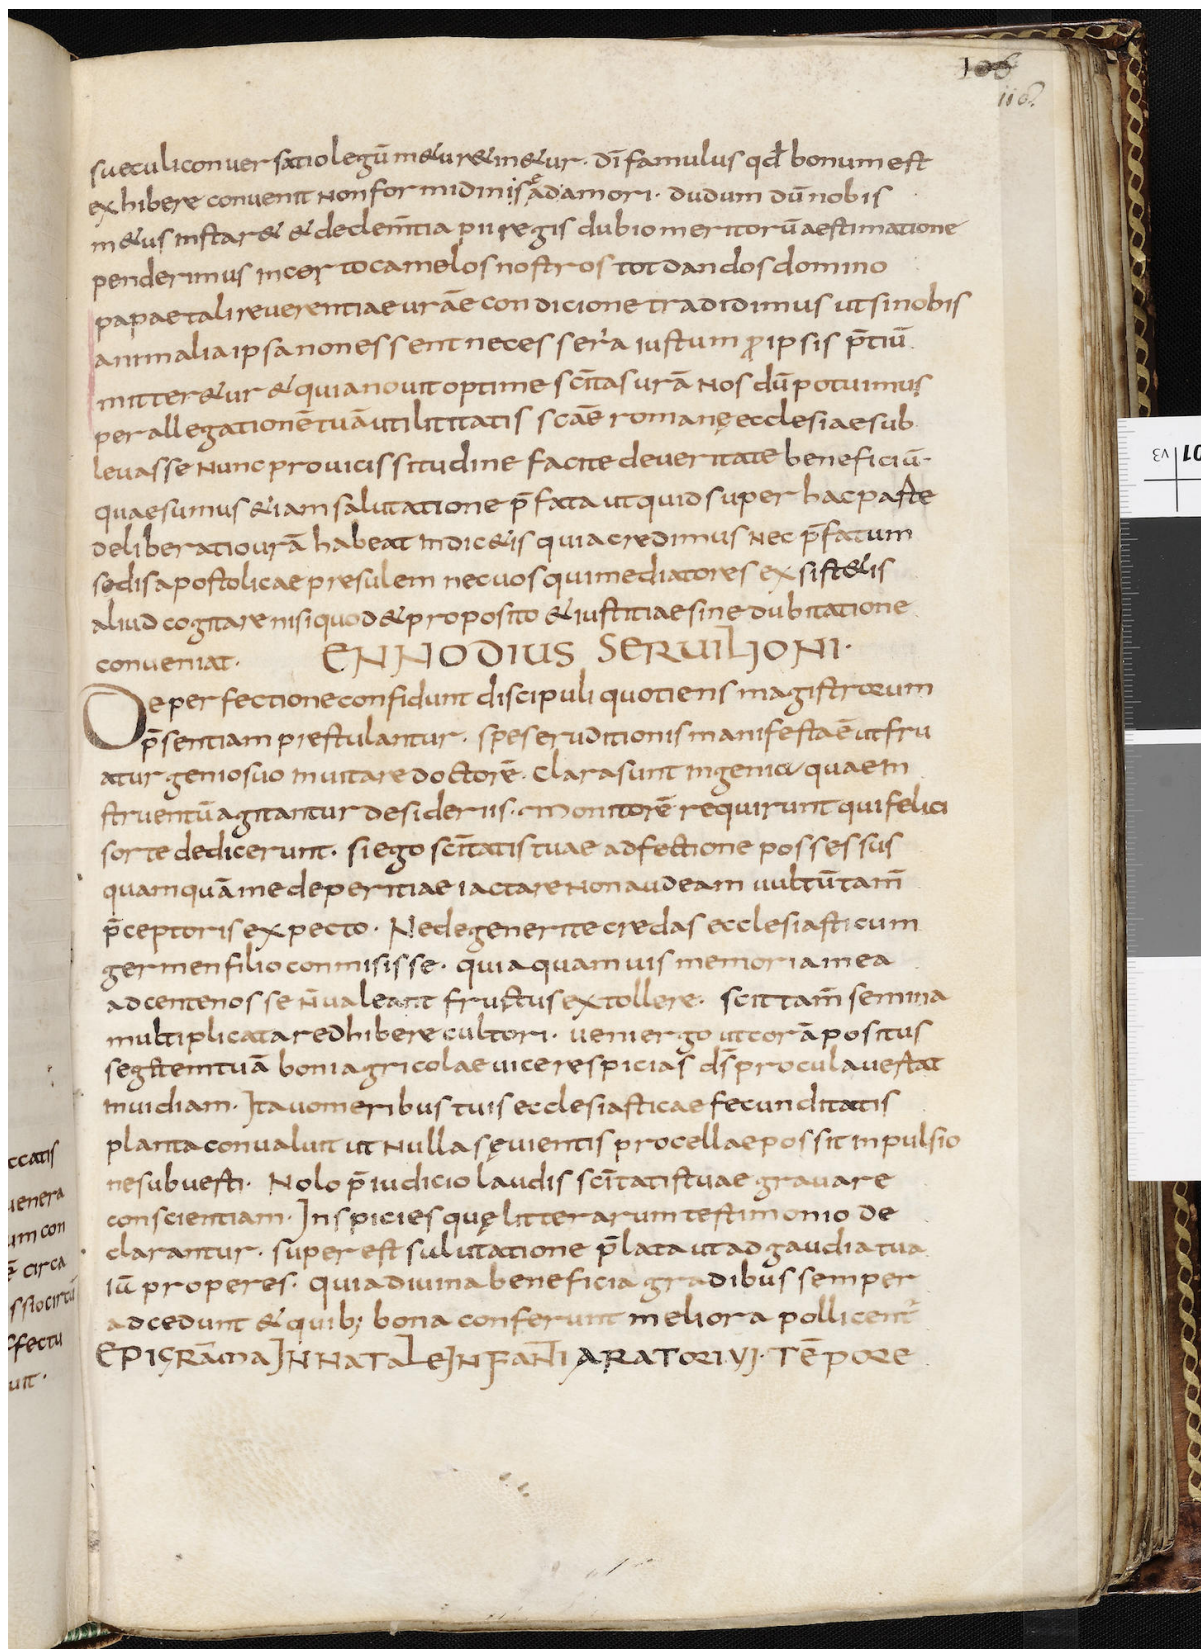 106
116
sueculiconuersatiolegū m&ur&in&ur· dī famulus qđ bonum est
exhibere conuenit Non formidinis ad amori· dudum dū nobis
m&us instar& & declem̄tia pii regis dubio meritorū aestimatione
penderimus incerto camelos nostros tot dandos domino
papae tali reuerentiae urāe condicione tradidimus ut si nobis
animalia ipsa non essent necessera iustum ꝓ ipsis p̄tiū
mitter&ur & quia nouit optime sc̄itas urā Nos dū potuimus
per allegationē tuā utilititatis sc̄āe romanę ecclesiae sub
leuasse Nunc prouicissitudine facite de ueritate beneficiū·
quaesumus &iam salutatione p̄fata ut quid super hac paste
deliberatio urā habeat indic&is quia credimus Nec p̄fatum
sedis apostolicae presulem nec uos qui mediatores exsist&is
aliud cogitare nisi quod & proposito & iustitiae sine dubitatione
conueniat· ENNODIUS SERUILIONI·
De perfectione confidunt discipuli quotiens magistrorum
p̄sentiam prestulantur· spes eruditionis manifesta ē ut fru
atur genio suo inuitare doctorē· Clara sunt ingenia quaem
struentū agitantur desideriis· Monitorē requirunt qui felici
sorte dedicerunt· si ego sc̄itatis tuae adfectione possessus
quamquā me de peritiae iactare Non audeam uultū tam̄
p̄ceptoris expecto· Ne degenerite credas ecclesiasticum
germen filio conmisisse· quia quamuis memoria mea
ad centenos se n̄ ualeant fructus extollere· scit tam̄ semina
multiplicata redhibere cultori· ueni ergo ut corā positus
segitem tuā boni agricolae uice respicias d̄s procul auestat
inuidiam· Ita uomeribus tuis ecclesiasticae fecunditatis
planta conualuit ut Nulla sęuientis procellae possit inpulsio
ne subuesti· Nolo p̄iudicio laudis sc̄itatis tuae grauare
conscientiam· Inspicies quę litterarum testimonio de
clarantur· super est sulutatione p̄lata ut ad gaudia tua
iū properes· quia diuina beneficia gradibus semper
adcedunt & quib; bona conferunt meliora pollicent᷑
EPIGRĀMA IN NATALE INFANTI ARATORI VI· TĒPORE
ccatis
uenera
um con
circa
ssio circū
ffectu
uit·
01
v3